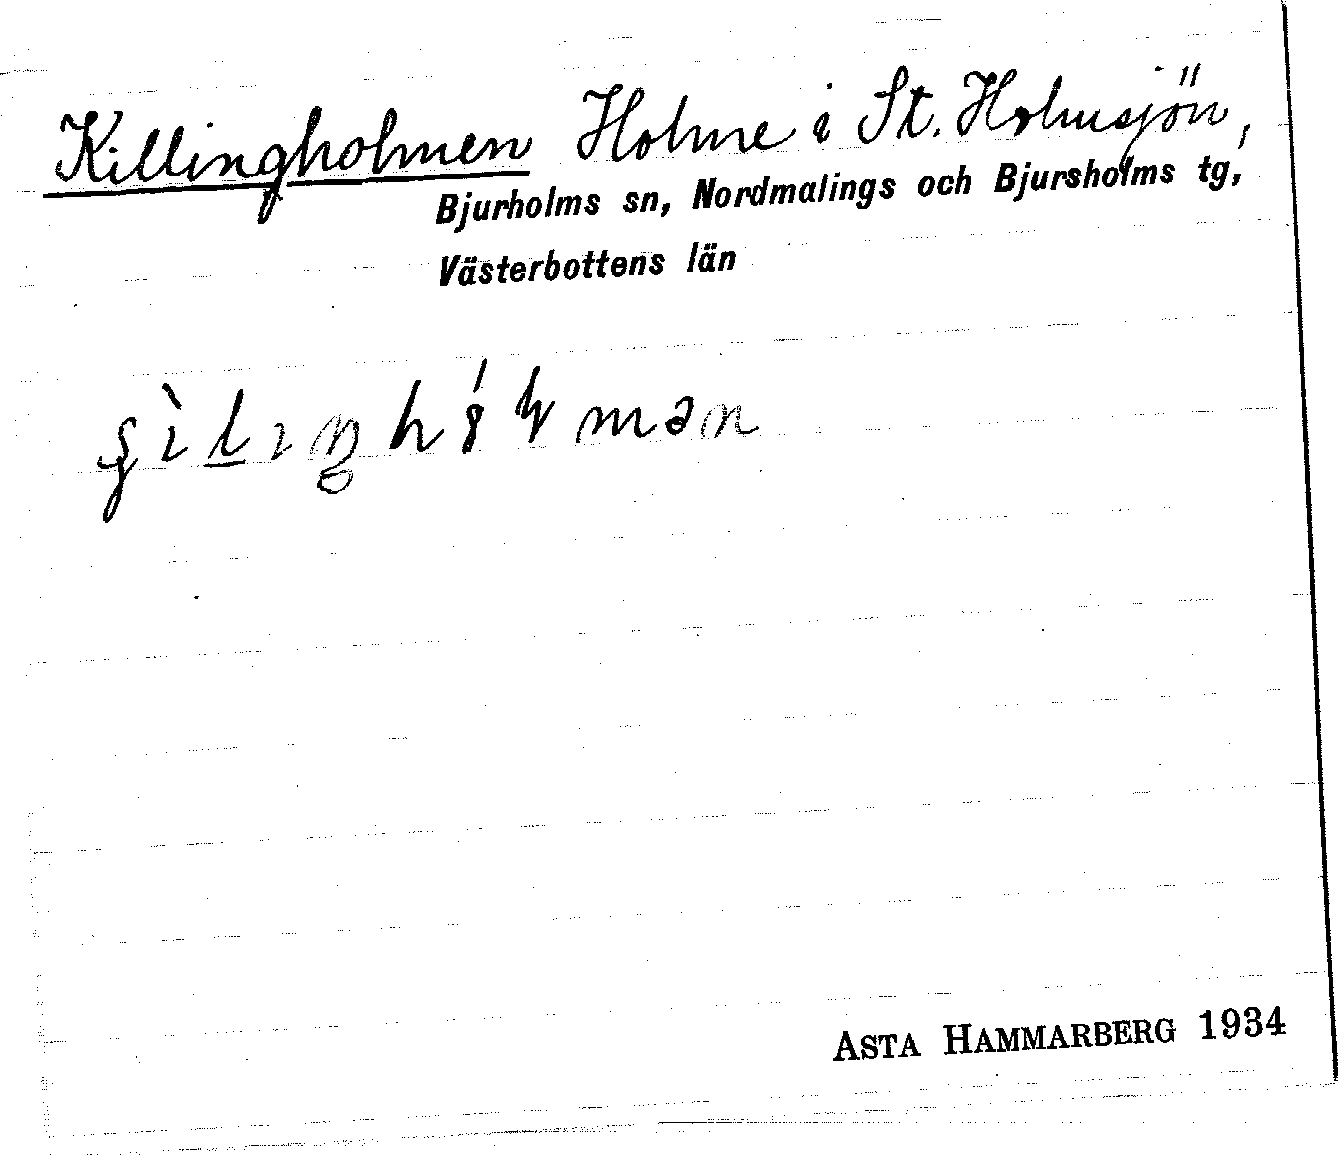 Killingholmen Holme i St. Holmsjön,
Bjurholms sn, Nordmalings och Bjursholms tg,
Västerbottens län
ASTA HAMMARBERG 1934